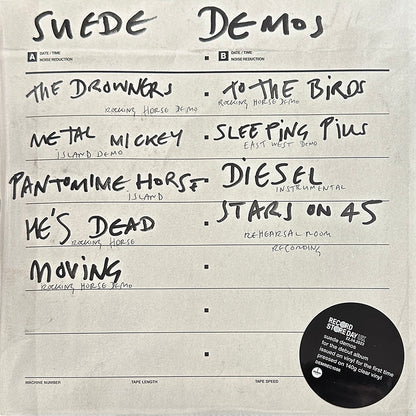 SUEDE DEMOS
A DATE / TIME
NOISE REDUCTION
B DATE / TIME
NOISE REDUCTION
THE DROWNERS
ROCKING HORSE DEMO
METAL MICKEY
ISLAND DEMO
PANTOMIME HORSE
ISLAND
HE'S DEAD
ROCKING HORSE
MOVING
ROCKING HORSE DEMO
TO THE BIRDS
ROCKING HORSE DEMO
SLEEPING PILLS
EAST WEST DEMO
DIESEL
INSTRUMENTAL
STARS ON 45
REHEARSAL ROOM
RECORDING
MACHINE NUMBER TAPE LENGTH TAPE SPEED
RECORD
STORE DAY
22.04.2023
suede demos
for the debut album
issued on vinyl for the first time
pressed on 140g clear vinyl
DEMREC1098